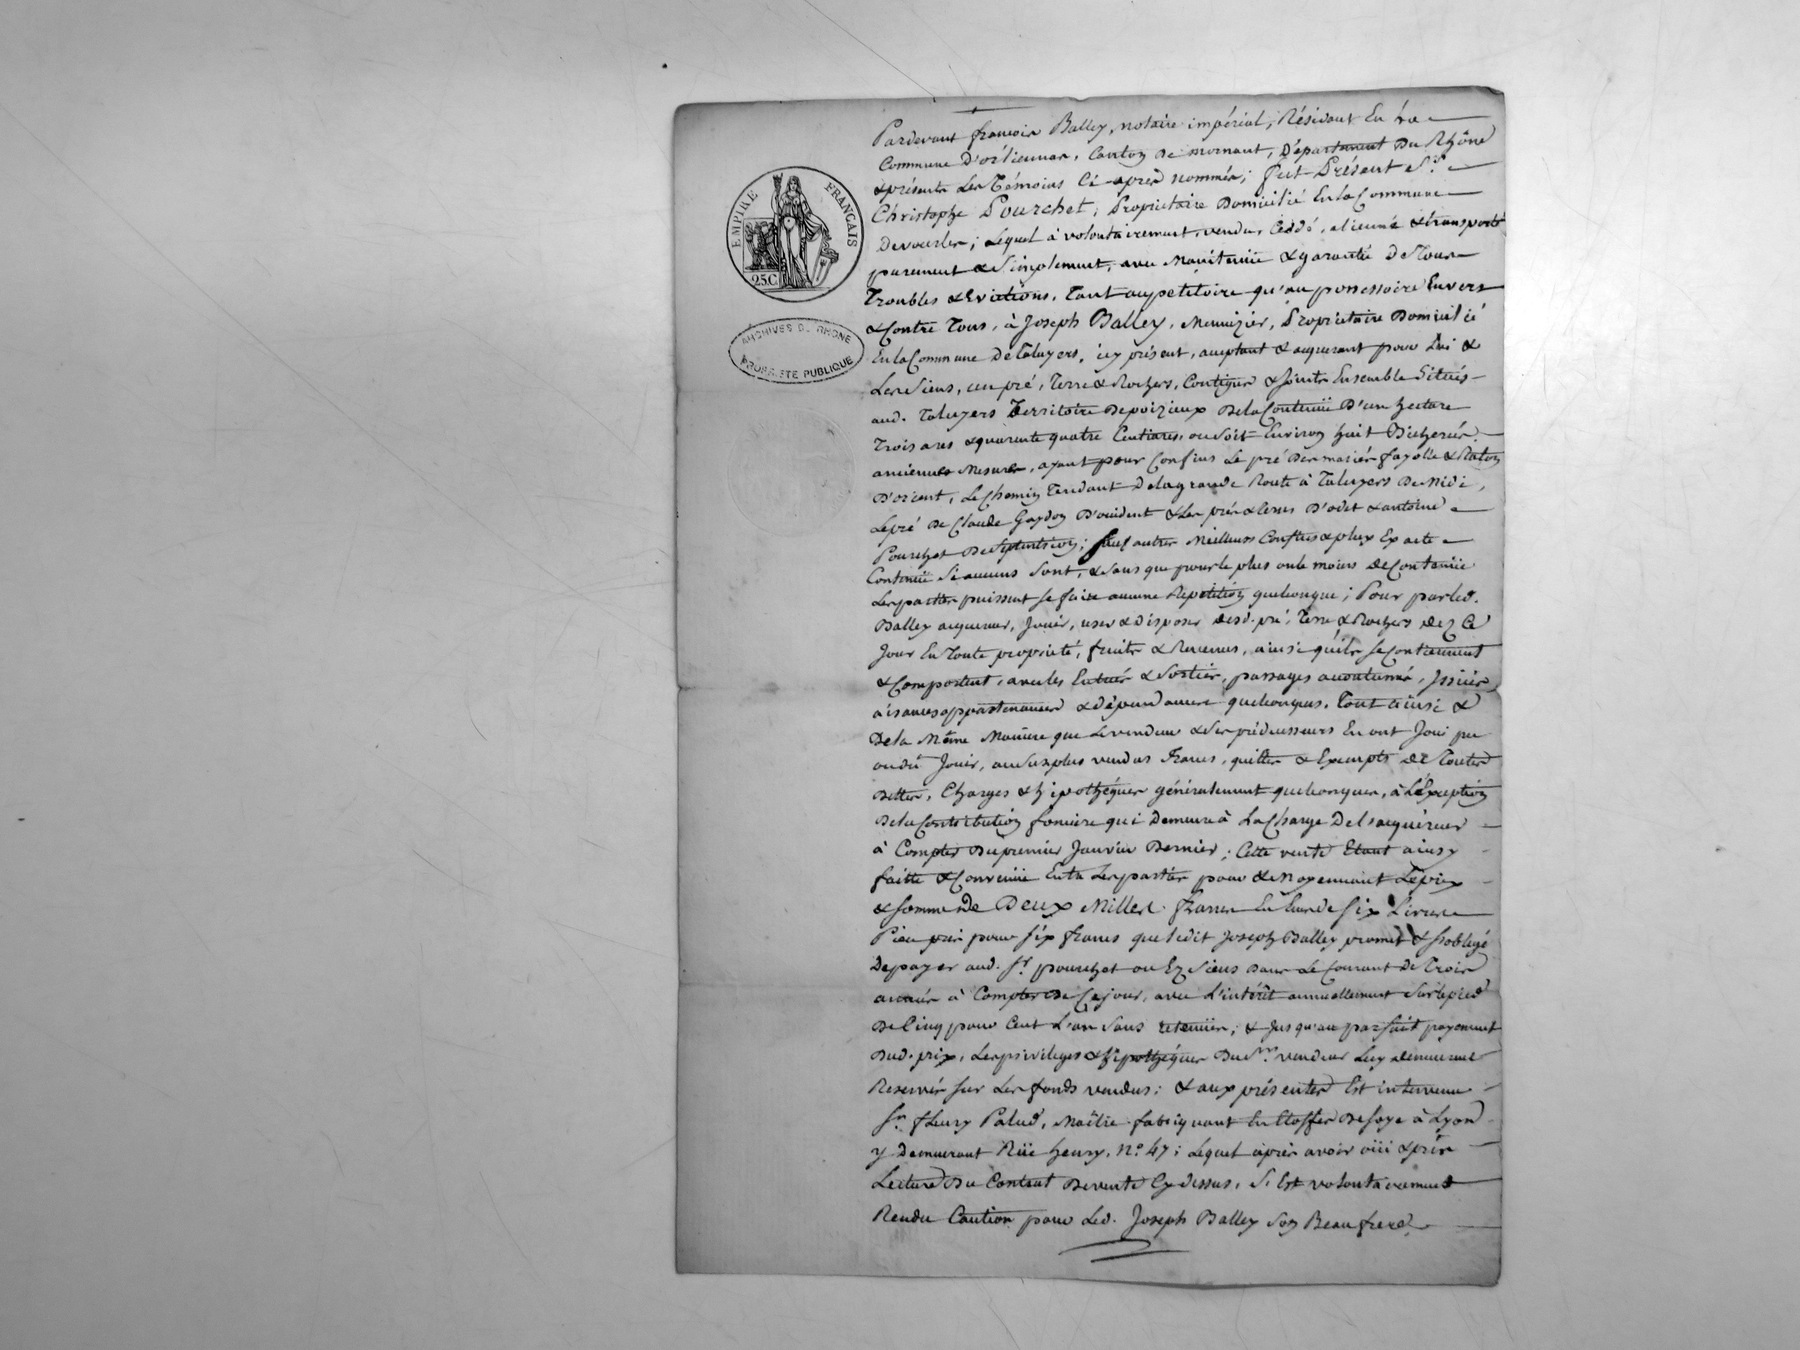 EMPIRE FRANÇAIS
25.C
ARCHIVES DU RHÔNE
PROPRIÉTÉ PUBLIQUE
Pardevant françois Balley, notaire impérial, Résidant En la
Commune D'orliennas, Canton De mornant, Département Du Rhône
& présents Les Témoins Ci après nommés; fut Présent Sr.
Christophe Pourchet, Propriétaire Domicilié En la Commune
De vourles; lequel à volontairement, vendu, Céddé, aliéné & transporté
purement & Simplement, avec Maintenüe & garantie De Tous
Troubles & Evictions, Tant au petitoire qu'au possessoire Envers
& Contre Tous, à Joseph Balley, Menuizier, Propriétaire Domicilié
En la Commune De Taluyers, icy présent, aceptant & acquerant pour Lui &
Les Siens, un pré, Terre & Rochers, Contigus & Joints Ensemble Situés
aud. Taluyers Territoire De poizieux De la Contenüe D'un hectare
Trois ares & quarente quatre Centiares, ou Soit Environ huit Bicherées
anciennes Mesures, ayant pour Confins Le pré Des mariés fayolle & Raton
D'orient, Le Chemin Tendant De la grande Route à Taluyers De Midi,
Le pré De Claude Gaydon D'occident & Les prés & terres D'odet & antoine
Pourchet De Septentrion; Sauf autres Meilleurs Confins & plus Exacte
Contenüe Si aucuns Sont, & Sans que pour le plus ou le moins De Contenüe
Les parties puissent se faire aucune Répétition quelconque; Pour par led.
Balley acquereur, Jouir, user & Disposer desd. pré, Terre & Rochers Dez Ce
Jour En Toute propriété, fruits & Revenus, ainsi qu'ils se Contiennent
& Comportent, avec les Entrées & Sorties, passages acoutumés, Issües
aisances appartenances & dépendances quelconques, Tout ainsi &
De la Même Manière que Le vendeur & Ses prédécesseurs En ont Joui pu
ou dû Jouir, au Surplus vendus francs, quittes & Exempts de Toutes
Dettes, Charges & hipothéques généralement quelconques, à L'Exception
De la Contribution fonciere qui Demeure à La Charge De l'acquéreur
à Compter Du premier Janvier Dernier; Cette vente Etant ainsy
faitte & Convenüe Entre Les parties pour & Moyennant Le prix
& Somme De Deux Milles francs En Ecus de Six Livres
Pièce pris pour Six francs que ledit Joseph Balley promet & s'oblige
De payer aud. Sr. pourchet ou Ez Siens Dans Le Courant De Trois
années à Compter De Ce jour, avec L'intérêt annuellement Sur le pied
De Cinq pour Cent L'an Sans retenüe; & Jusqu'au parfait payement
Dud. prix, Les privileges & hipothéques Du Sr. vendeur Luy demeurent
Réservés Sur Les fonds vendus; & aux présentes Est intervenu
Sr. fleury Palud, Maître fabriquant En Etoffes De Soye à Lyon
y Demeurant Rüe henry, No. 47; Lequel après avoir oüi & pris
Lecture Du Contrat De vente Cy dessus, S'Est volontairement
Rendu Caution pour Led. Joseph Balley Son Beau frere